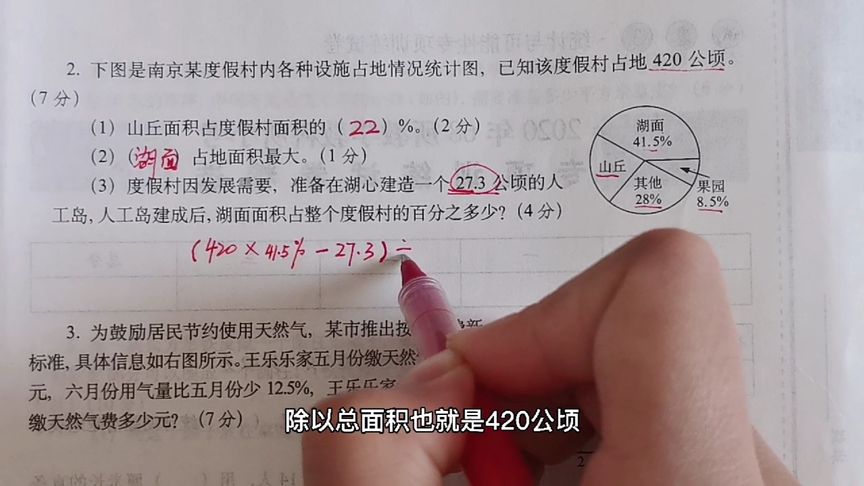 2. 下图是南京某度假村内各种设施占地情况统计图，已知该度假村占地 420 公顷。
(7 分)
(1) 山丘面积占度假村面积的 ( 22 ) %。(2 分)
(2) (湖面 占地面积最大。(1 分)
(3) 度假村因发展需要，准备在湖心建造一个 27.3 公顷的人
工岛，人工岛建成后，湖面面积占整个度假村的百分之多少? (4 分)
湖面
41.5%
山丘
其他
28%
果园
8.5%
(420 × 41.5% - 27.3) ÷
3. 为鼓励居民节约使用天然气，某市推出按
标准，具体信息如右图所示。王乐乐家五月份缴天然
元，六月份用气量比五月份少 12.5%，王乐乐家
缴天然气费多少元? (7 分)
除以总面积也就是420公顷